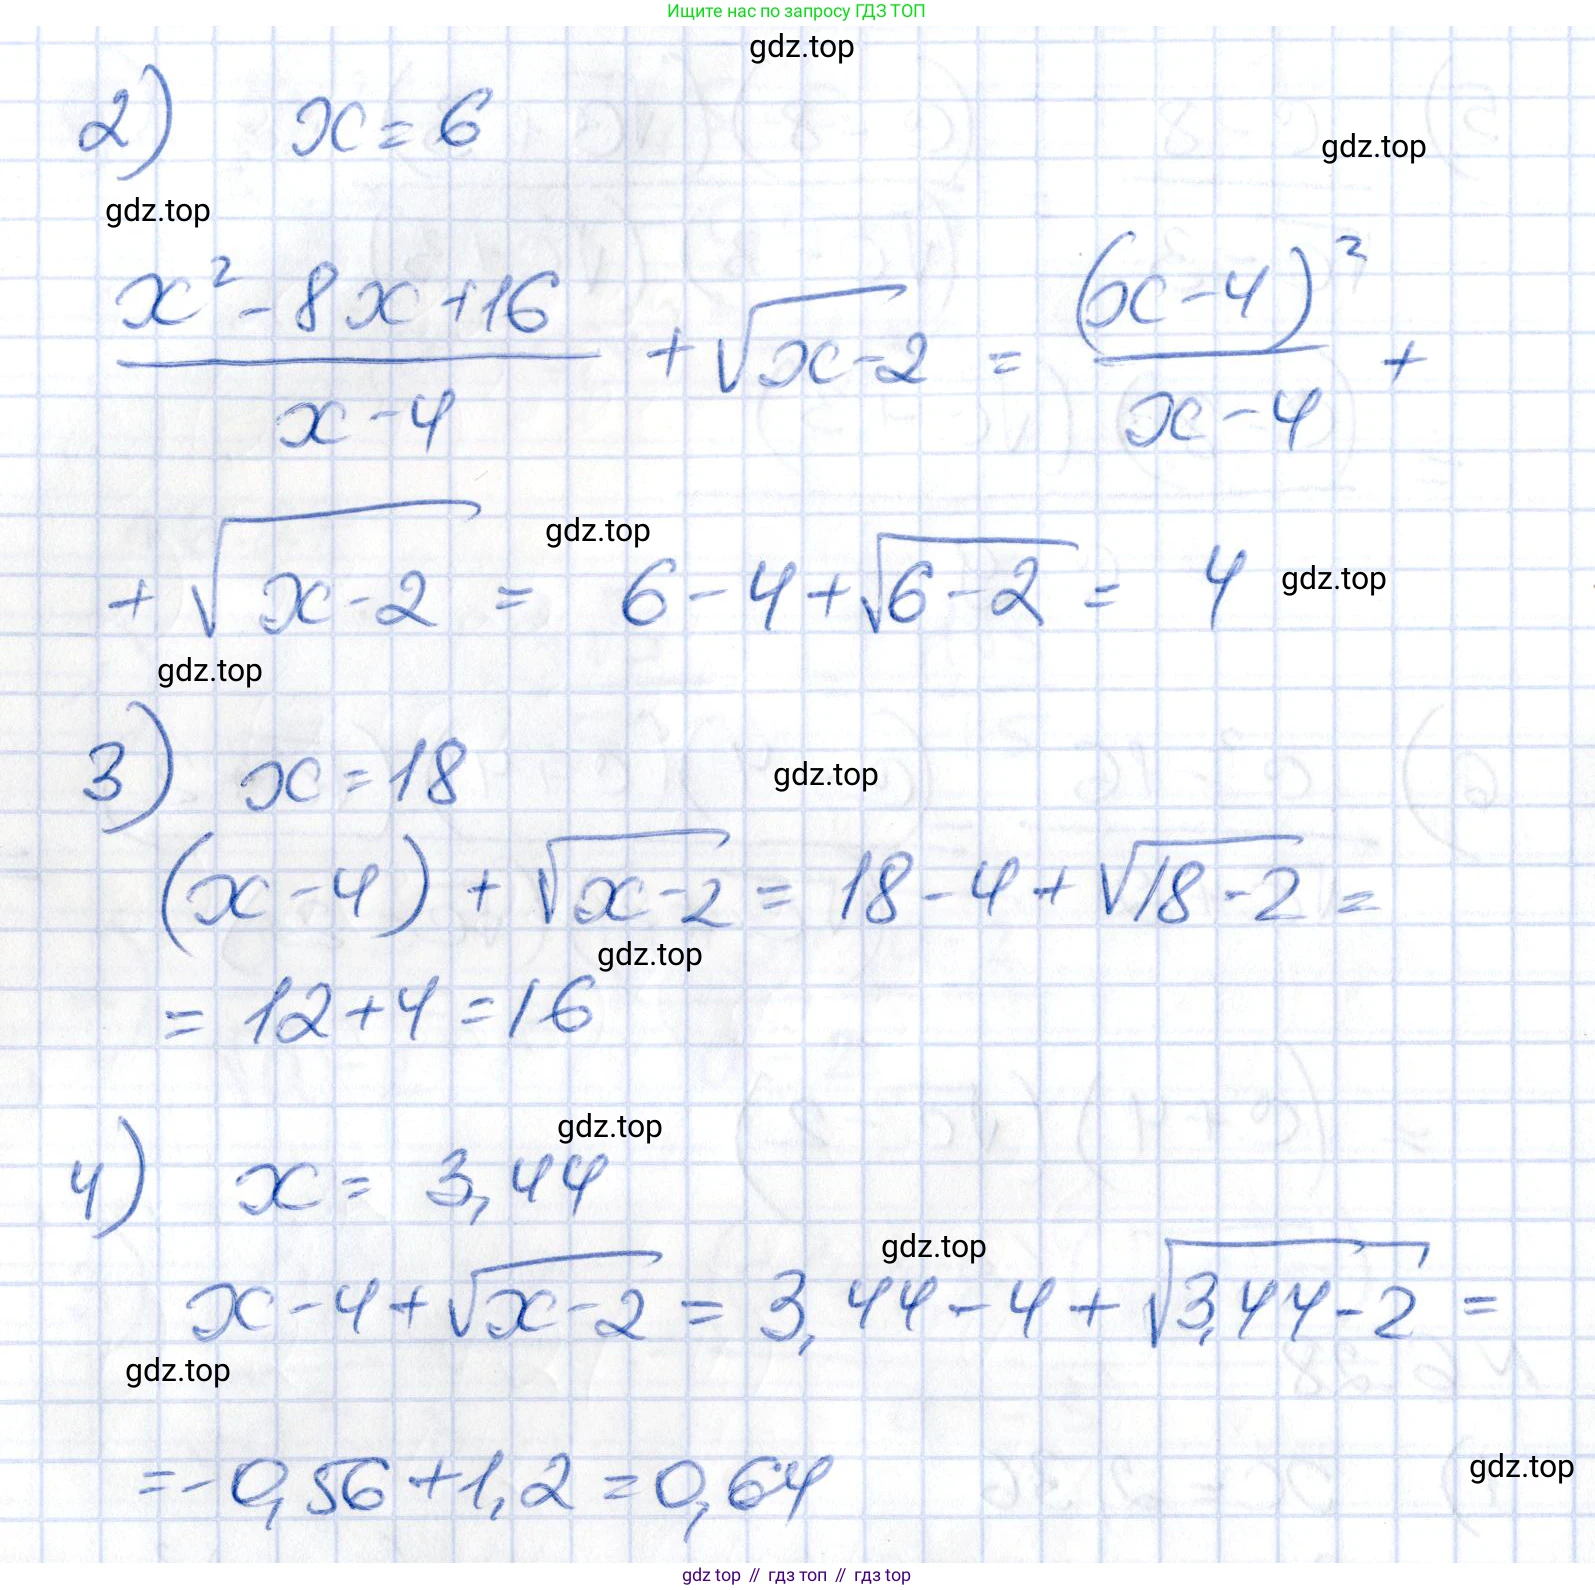 Ищите нас по запросу ГДЗ ТОП
gdz.top
2) x = 6
gdz.top
gdz.top
(x² - 8x + 16)/(x - 4) + √(x - 2) = (x - 4)²/(x - 4) +
+ √(x - 2) = 6 - 4 + √(6 - 2) = 4
gdz.top
gdz.top
gdz.top
3) x = 18
gdz.top
(x - 4) + √(x - 2) = 18 - 4 + √(18 - 2) =
gdz.top
= 12 + 4 = 16
gdz.top
4) x = 3,44
gdz.top
x - 4 + √(x - 2) = 3,44 - 4 + √(3,44 - 2) =
gdz.top
= -0,56 + 1,2 = 0,64
gdz.top
gdz top // гдз топ // гдз top